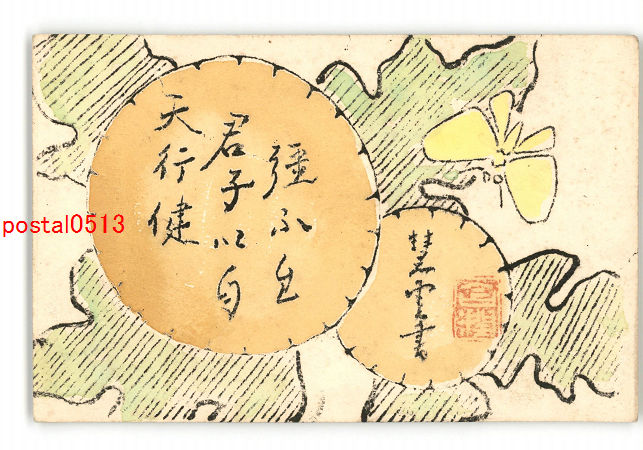 天行健
君子以自
彊不息
慧雲書
postal0513